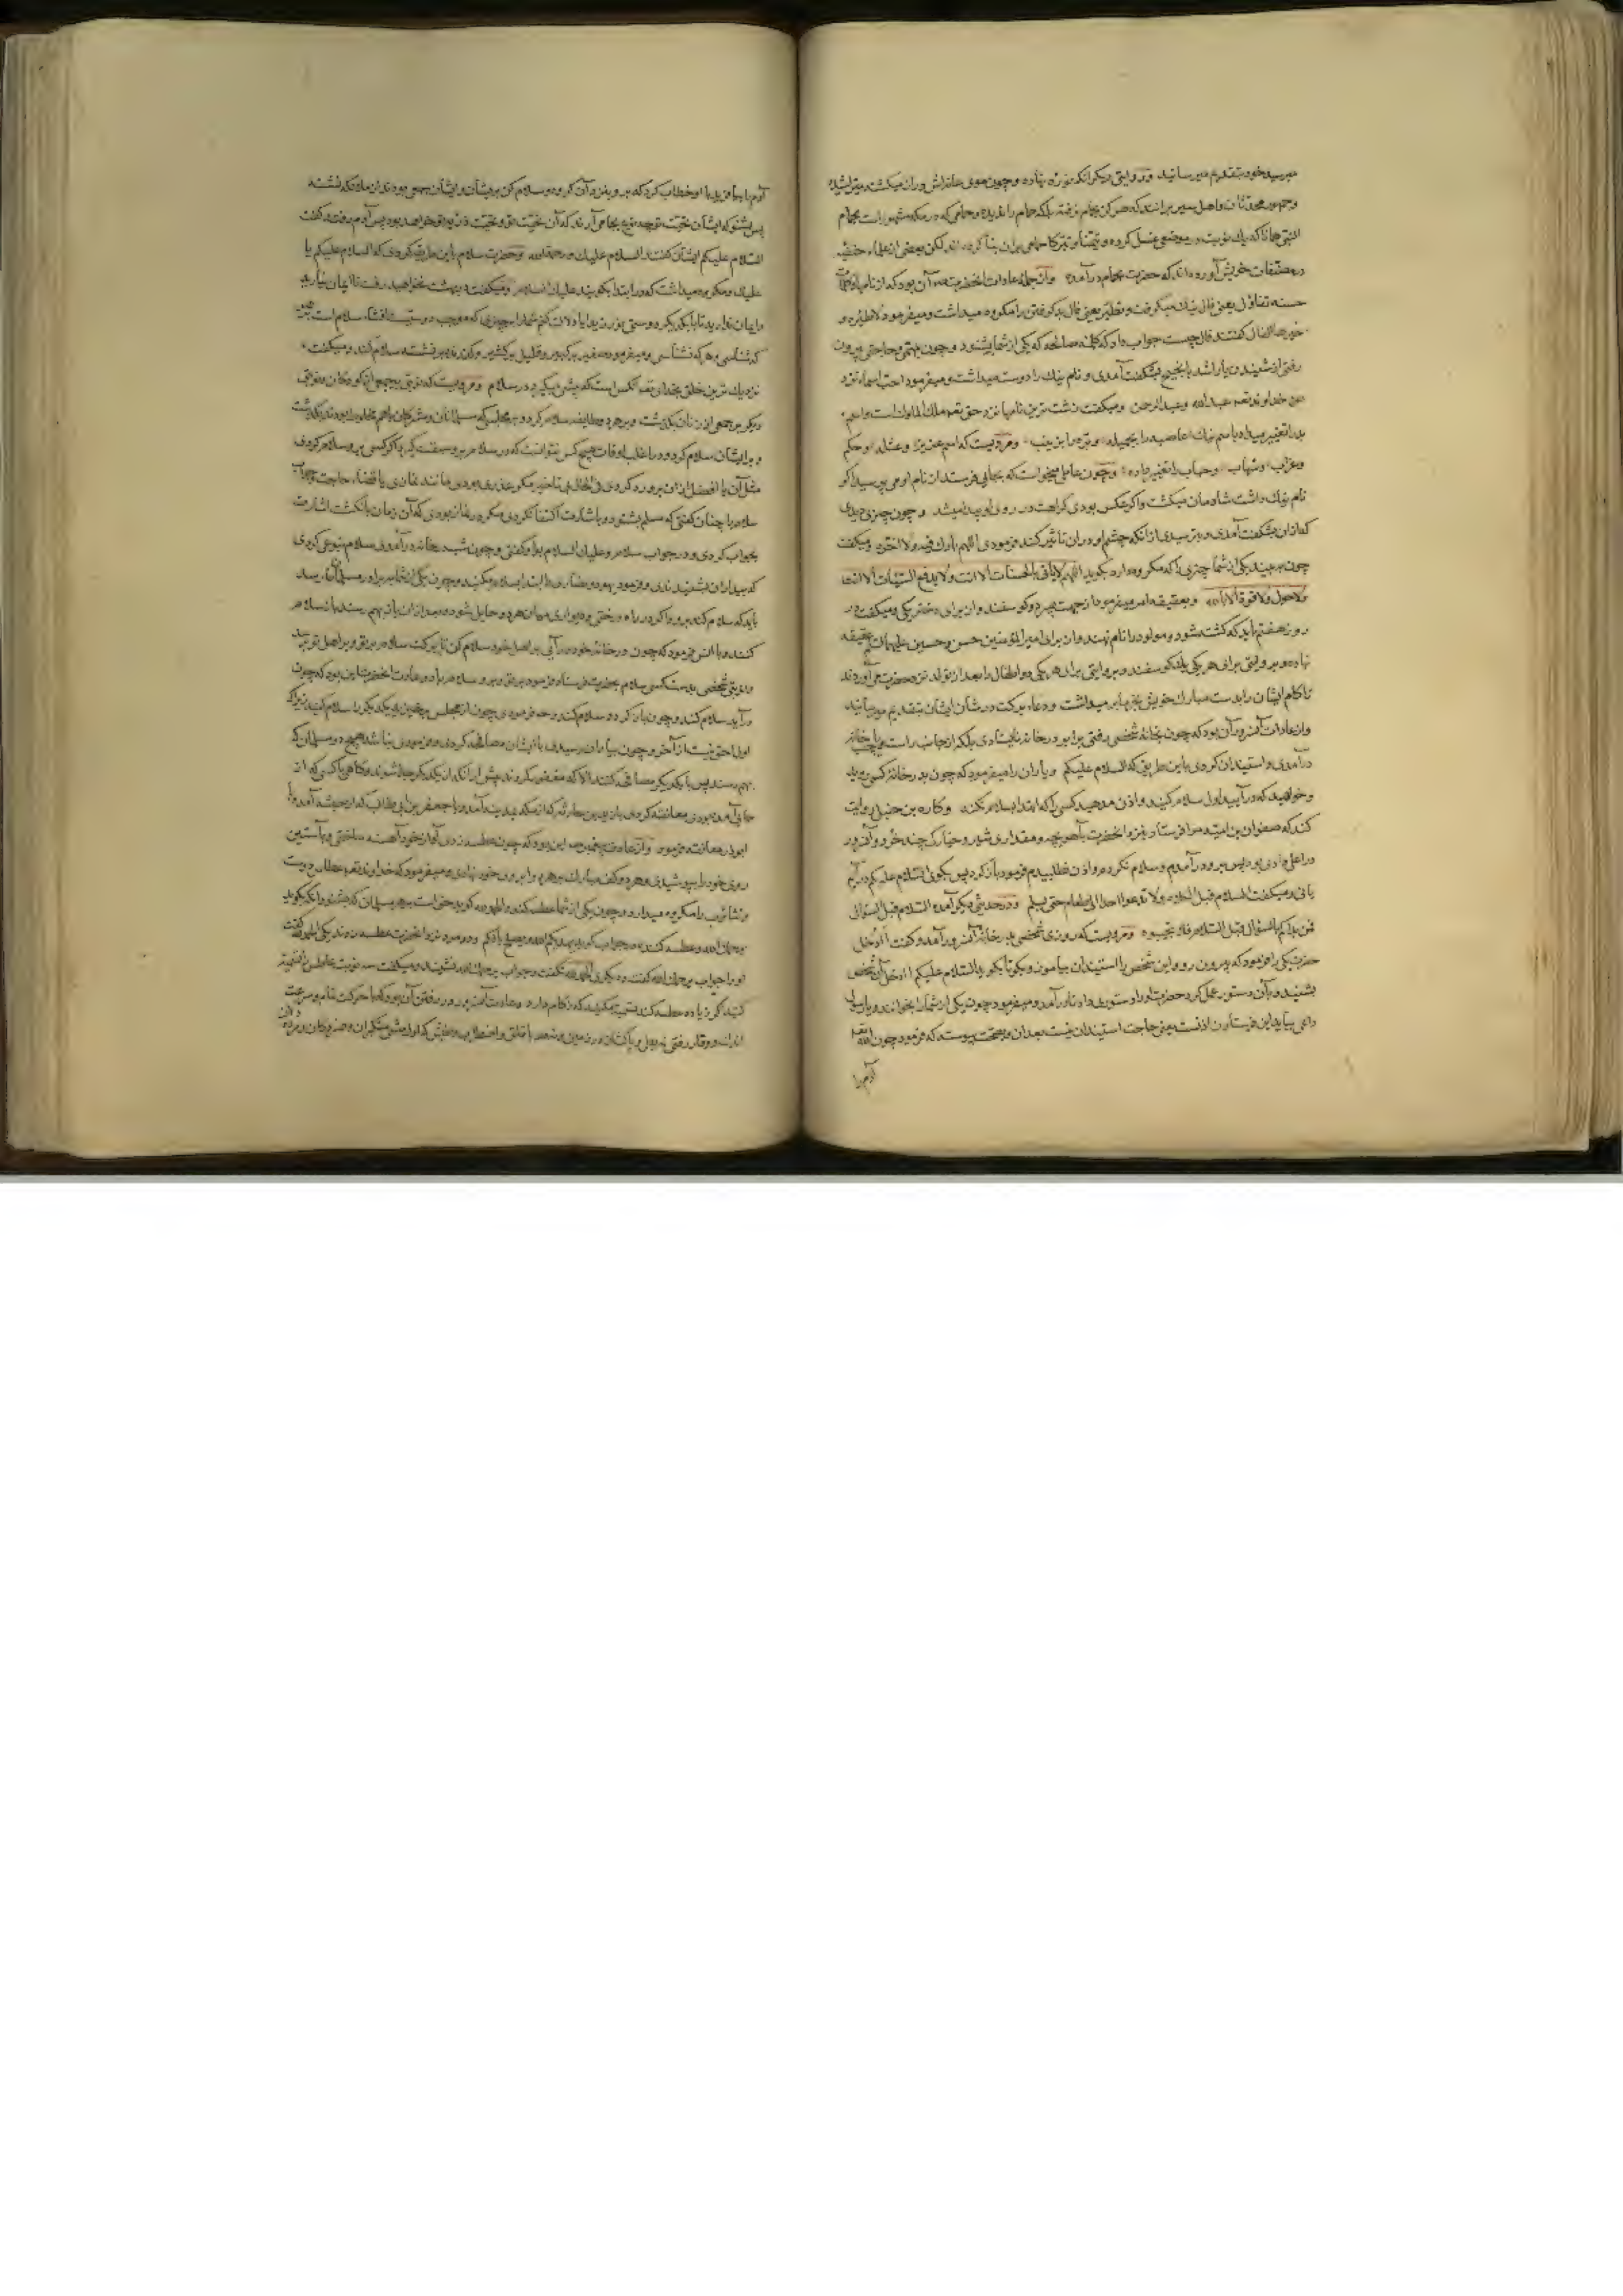 میرسید خود بتقدیم میرسانید و در وایتی دیگر انکه نوزه نهاده و چون موی عانه‌اش دراز میکشت میتراشید
و جمهور محدثان و اهل سیر برانند که هرکز بحمام نرفته بلکه حمام را ندیده و حمامی که در مکه مشهور است بحمام
النبی همانا که یك نوبت در موضعی غسل کرده و تیمنا و تبرکا حمامی بران بنا کرده‌اند لکن بعضی از علماء حنفیه
در مصنفات خویش آورده‌اند که حضرت بحمام در آمده و از جمله عادات انحضرت آن بود که از نام یا کلمات
حسنه تفاؤل یعنی فال نیك میکرفت و تطیر یعنی فال بد کرفتن را مکروه میداشت و میفرمود لاطیرة و
خیرها الفال کفتند فال چیست جواب داد که کلمه صالحه که یکی از شما بشنود و چون بمهمی و حاجتی بیرون
رفتی از شنیدن یا راشد یا نجیح بشکفت آمدی و نام نیك را دوست میداشت و میفرمود احب اسماء نزد
خداوند عبدالله و عبدالرحمن و میکفت زشت ترین نامها نزد حق ملك الملوك است و اسم
بد را تغییر میداد باسم نیك عاصیه را بجمیله و بره را بزینب و مرویست که اسم عزیز و عتله و حکم
و غراب و شهاب و حباب را تغییر داده و چون عاملی میخواست که بجایی فرستد از نام او می پرسید اکر
نام نیك داشت شادمان میکشت و اکر عکس بودی کراهت در روی او پیدا میشد و چون چیزی دیدی
که از ان بشکفت آمدی و بترسیدی از انکه چشم او دران تاثیر کند فرمودی اللهم بارك فیه ولا تضره و میکفت
چون ببیند یکی از شما چیزی را که مکروه دارد بکوید اللهم لا یاتی بالحسنات الا انت ولا یدفع السیئات الا انت
ولا حول ولا قوة الا بالله و بعقیقه امر میفرمود از جهت پسر دو کوسفند و از برای دختر یکی و میکفت در
روز هفتم باید که کشته شود و مولود را نام نهند و از برای امیر المؤمنین حسن و حسین علیهما السلام عقیقه
نهاده و بروایتی برای هر یکی یك کوسفند و بروایتی برای هر یکی دو و اطفال را بعد از تولد نزد حضرت می‌آوردند
تا کام ایشان را بدست مبارك خویش بخرما بر میداشت و دعاء برکت در شان ایشان بتقدیم میرسانید
و از عادات آن سرور آن بود که چون بخانه شخصی رفتی برابر در خانه نایستادی بلکه از جانب راست یا چپ خانه
درآمدی و استیذان کردی باین طریق که السلام علیکم و یاران را میفرمود که چون بدر خانه کسی روید
و خواهید که درآیید اول سلام کنید و اذن مدهید کسی را که ابتدا بسلام نکند و کلده بن حنبل روایت
کند که صفوان بن امیه مرا فرستاد بنزد انحضرت با آهو بچه و مقداری شیر و خیارکی چند خرد و آن سرور
در اعلی وادی بود پس برو درآمدم و سلام نکردم و اذن نطلبیدم فرمود بازکرد پس بکوی السلام علیکم
یا نی و میکفت السلام قبل الکلام ولا تدعوا احدا الی الطعام حتی یسلم و در حدیثی دیکر آمده السلام قبل السؤال
فمن بداکم بالسؤال قبل السلام فلا تجیبوه و مرویست که روزی شخصی بدر خانه آن سرور آمد و کفت أأدخل
حضرت یکی را فرمود که بیرون رو و این شخص را استیذان بیاموز و بکو تا بکوید السلام علیکم أأدخل آن شخص
بشنید و بآن دستور عمل کرد حضرت او را دستوری داد تا درآمد و میفرمود چون یکی از شما را بخوانند و با رسول
داعی بیاید این فرستادن اذنست یعنی حاجت استیذان نیست بعد ازان و بصحت پیوسته که فرمود چون الله تعالی
آدم را
آدم را بیافرید با او خطاب کرد که برو بنزد آن کروه و سلام کن بریشان و ایشان جمعی بودند از ملائکه نشسته
پس بشنو که ایشان تحیت تو چه نوع بجا می‌آرند که آن تحیت تو و تحیت ذریه تو خواهد بود پس آدم رفت و کفت
السلام علیکم ایشان کفتند السلام علیك و رحمة الله و حضرت سلام باین طریق کردی که السلام علیکم یا
علیك و مکروه میداشت که در ابتدا بکویند علیك السلام و میکفت در بهشت نخواهید رفت تا ایمان نیارید
و ایمان ندارید تا با یکدیکر دوستی نورزید ایا دلالت کنم شما را بچیزی که موجب دوستیست افشاء سلام است
که شناسی و هر که نشناسی و میفرمود صغیر بر کبیر و قلیل بر کثیر و کذرنده بر نشسته سلام کند و میکفت
نزدیك ترین خلق بخدای تعالی انکس است که پیشی کیرد در سلام و مرویست که نوبتی بر جمعی از کودکان و نوبتی
دیکر بر جمعی از زنان بکذشت و بر هر دو طایفه سلام کرد و بر مجلسی که مسلمانان و مشرکان باهم مخلوط بودند بکذشت
و برایشان سلام کرد و در اغلب اوقات هیچ کس نتوانست که در سلام برو سبقت کیرد و اکر کسی برو سلام کردی
مثل آن یا افضل ازان برو رد کردی فی الحال بی تاخیر مکر عذری بودی مانند نمازی یا قضاء حاجت و جواب
سلام را چنان کفتی که مسلم بشنود و باشارت اکتفا نکردی مکر در نماز بودی که آن زمان بانکشت اشارت
بجواب کردی و در جواب سلام و علیك السلام بواو کفتی و چون شب بخانه درآمدی سلام بنوعی کردی
که بیداران بشنیدندی و فرمود یهود و نصاری را ابتدا بسلام مکنید و چون یکی از شما ببرادر مسلمان رسد
باید که سلام کند برو و اکر در راه درختی و دیواری میان هر دو حایل شود و بعد ازان باز بهم رسند باز سلام
کنند و با انس فرمود که چون در خانه خود درآیی بر اهل خود سلام کن تا برکت سلام بر تو و بر اهل تو رسد
و نوبتی شخصی بدست کسی سلام بحضرت فرستاد فرمود بر تو و برو سلام باد و عادت انحضرت این بود که چون
درآید سلام کند و چون باز کردد سلام کند و هم فرمودی چون از مجلس برخیزید بیکدیکر را سلام کنید زیرا که
اول احق نیست از آخر و چون بیاران رسیدی با ایشان مصافحه کردی و فرمودی نباشد هیچ دو مسلمان که
بهم رسند پس با یکدیکر مصافحه کنند الا که مغفور کردند پیش از انکه از یکدیکر جدا شوند و کاهی با کسی که از
جایی آمده بودی معانقه کردی با زید بن حارثه که از مکه بمدینه آمد و با جعفر بن ابی طالب که از حبشه آمد و با
ابوذر معانقه فرمود و از عادت پیغمبر این بود که چون عطسه زدی آواز خود آهسته ساختی و بآستین
روی خود را بپوشیدی و هر دو کف مبارك بر هر دو ابروی خود نهادی و میفرمود که خداوند تعالی عطاس دوست
و تثاؤب را مکروه میدارد و چون یکی از شما عطسه کند و الحمدلله کوید حق است بر هر مسلمان که بشنود انکه بکوید
یرحمك الله و عطسه کننده در جواب کوید یهدیکم الله و یصلح بالکم و دو مرد نزد انحضرت عطسه زدند یکی الحمدلله کفت
او را جواب یرحمك الله کفت و دیکری الحمدلله نکفت و جواب یرحمك الله نشنید و میکفت سه نوبت عاطس را تشمیت
کنید اکر زیاده عطسه کند تشمیت مکنید که زکام دارد و عادت آن سرور در رفتن آن بود که با حرکت تمام و سرعت
اندك و وقار رفتی نه بهزل و باکتاف در زمین و نه با قلق و اضطراب و طیش که اول مشی متکبران و مغروران و مرده